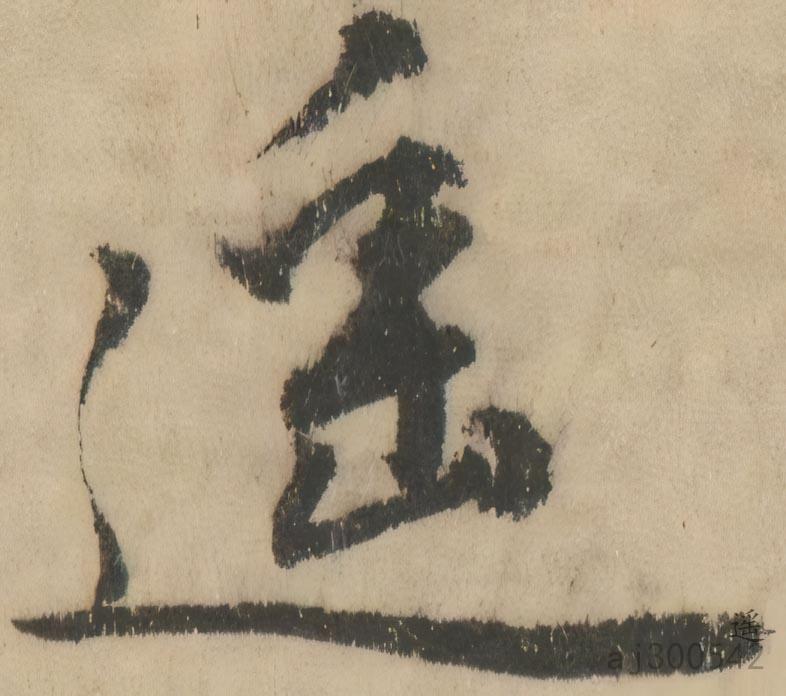 遥
遥
aj300542